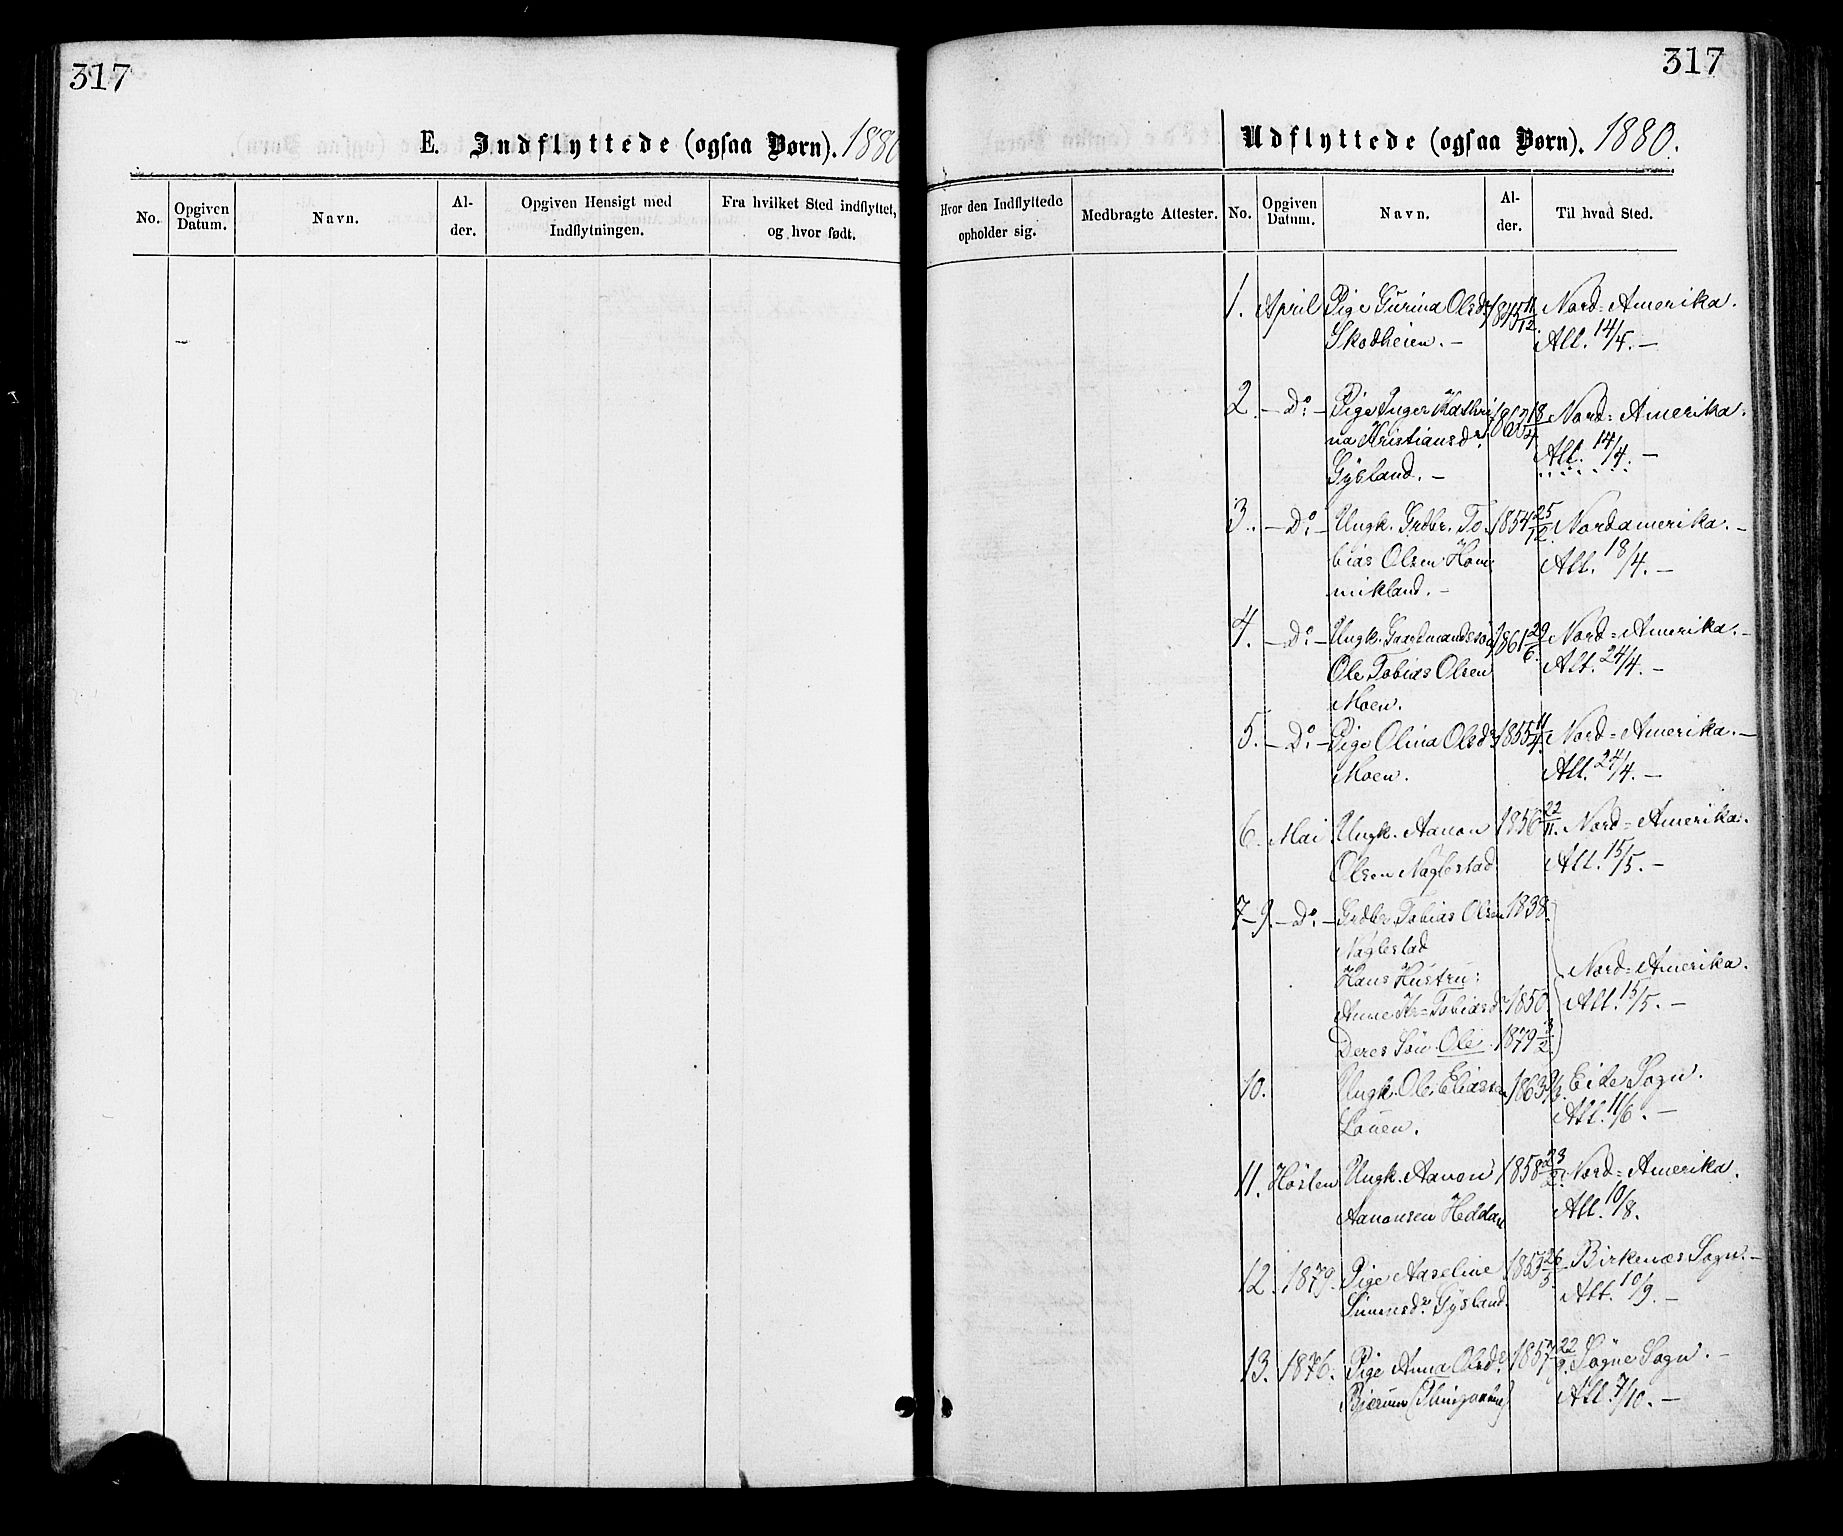 317
317
E. Indflyttede (ogsaa Børn). 1880
Udflyttede (ogsaa Børn). 1880.
No.
Opgiven Datum.
Navn.
Al-
der.
Opgiven Hensigt med
Indflytningen.
Fra hvilket Sted indflyttet,
og hvor født.
Hvor den Indflyttede
opholder sig.
Medbragte Attester.
No.
Opgiven Datum.
Navn.
Al-
der.
Til hvad Sted.
1. April Pige Gurina Olsdr 1845 11/12. Nord=Amerika.
Skodheien. – Att. 14/4. –
2. – Do. – Pige Inger Kathri 18/4 Nord=Amerika.
na Kristiansdr. Att. 14/4. –
Gysland. –
3. – Do. – Ungk. Grdbr. To- 1854 25/12. Nordamerika. –
bias Olsen Hom Att. 18/4. –
mikland. –
4. – Do. – Ungk. Gaardmandssøn 1861 29/6. Nord=Amerika. –
Ole Tobias Olsen Att. 24/4. –
Moen.
5. – Do. – Pige Olina Olsdr 1855 11/4. Nord=Amerika. –
Moen. Att. 24/4. –
6. Mai Ungk. Aanon 1856 22/11. Nord=Amerika.
Olsen Naglestad. Att. 15/5. –
7–9. – Do. – Grdbr. Tobias Olsen 1838.
Naglestad
Hans Hustru: Nord=Amerika.
Anne Kr= Tobiasdr 1850. Att. 15/5. –
Deres Søn Ole 1879 3/2.
10. Ungk. Ole Eliassen 1863 Eide Sogn.
Louen. Att. 11/6. –
11. Høsten Ungk. Aanon 1858 23/2. Nord=Amerika.
Aanonsen Heddan Att. 10/8.
12. 1879. Pige Aaseline 1853 26/5. Birkenæs Sogn. –
Simensdr. Gysland. Att. 10/9. –
13. 1876. Pige Anna Olsdr. 1857 22/9. Søgne Sogn. –
Bjærum Att. 7/10. –